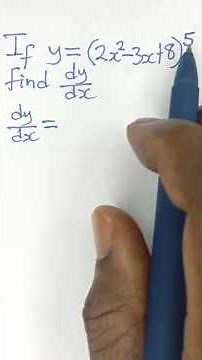 If y = (2x²-3x+8)⁵
find dy/dx
dy/dx =